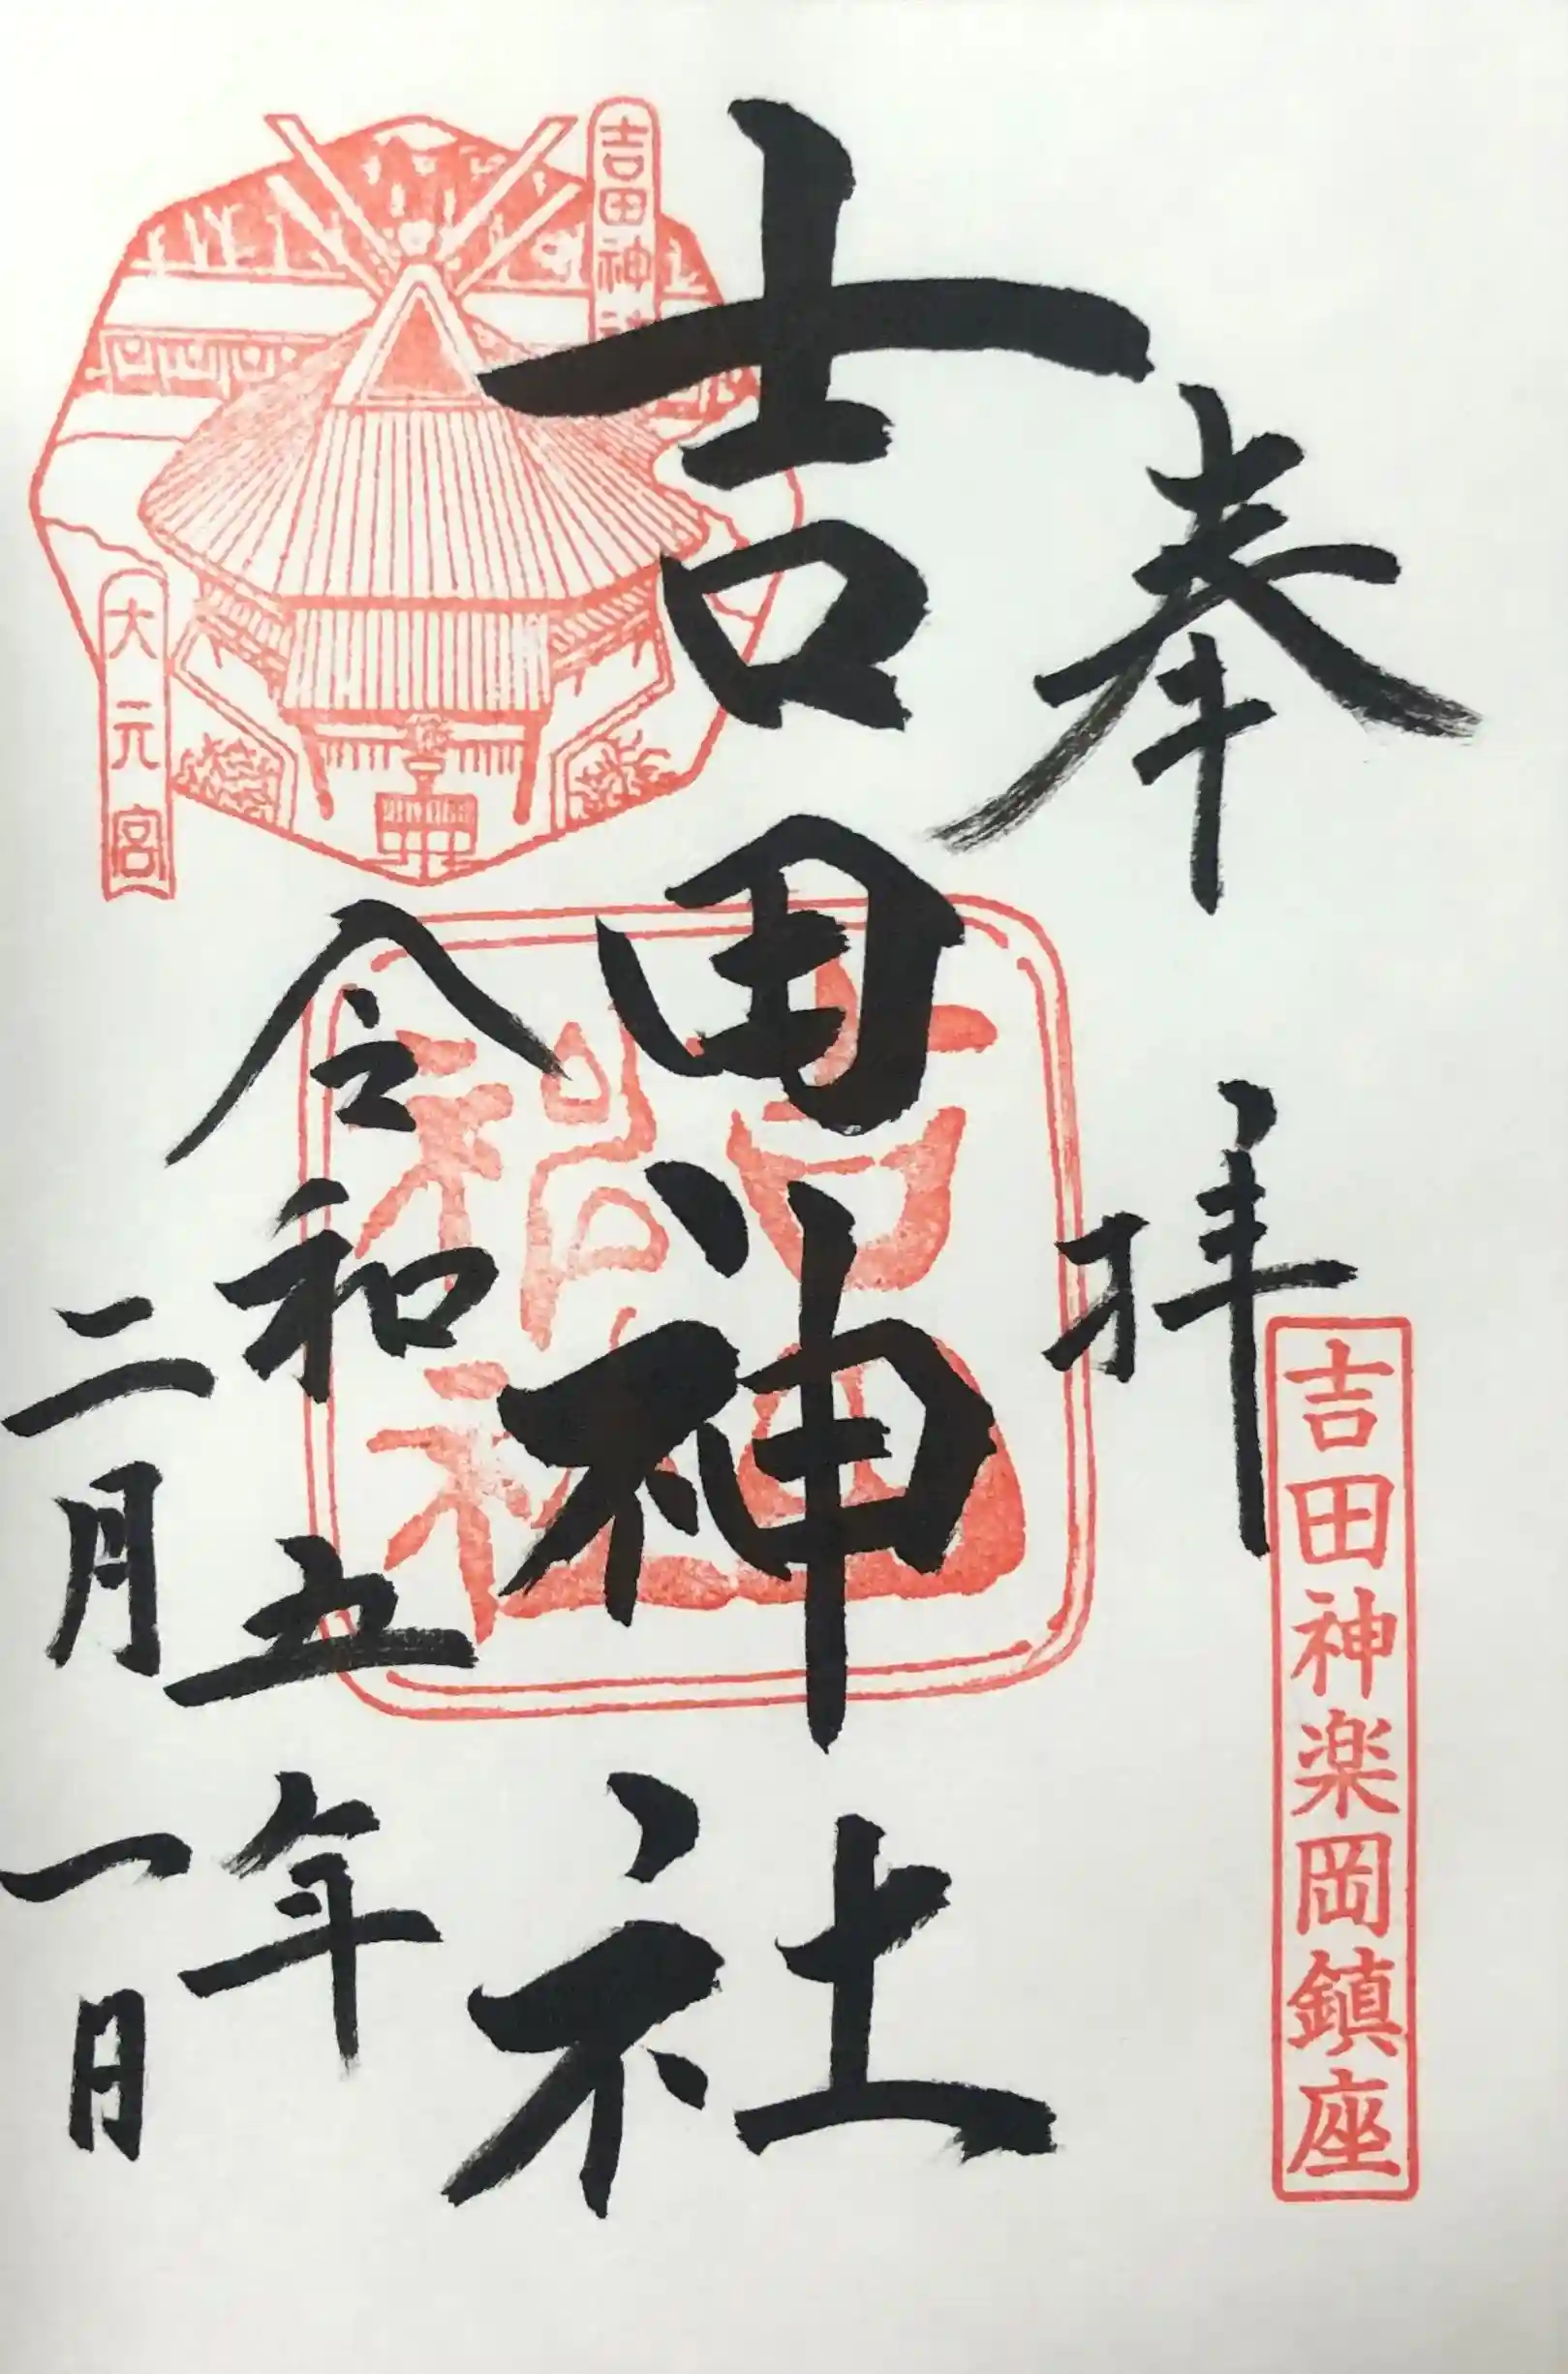 奉拝
吉田神楽岡鎮座
吉田神社
吉田神社
吉田神社
大元宮
令和五年
二月一日